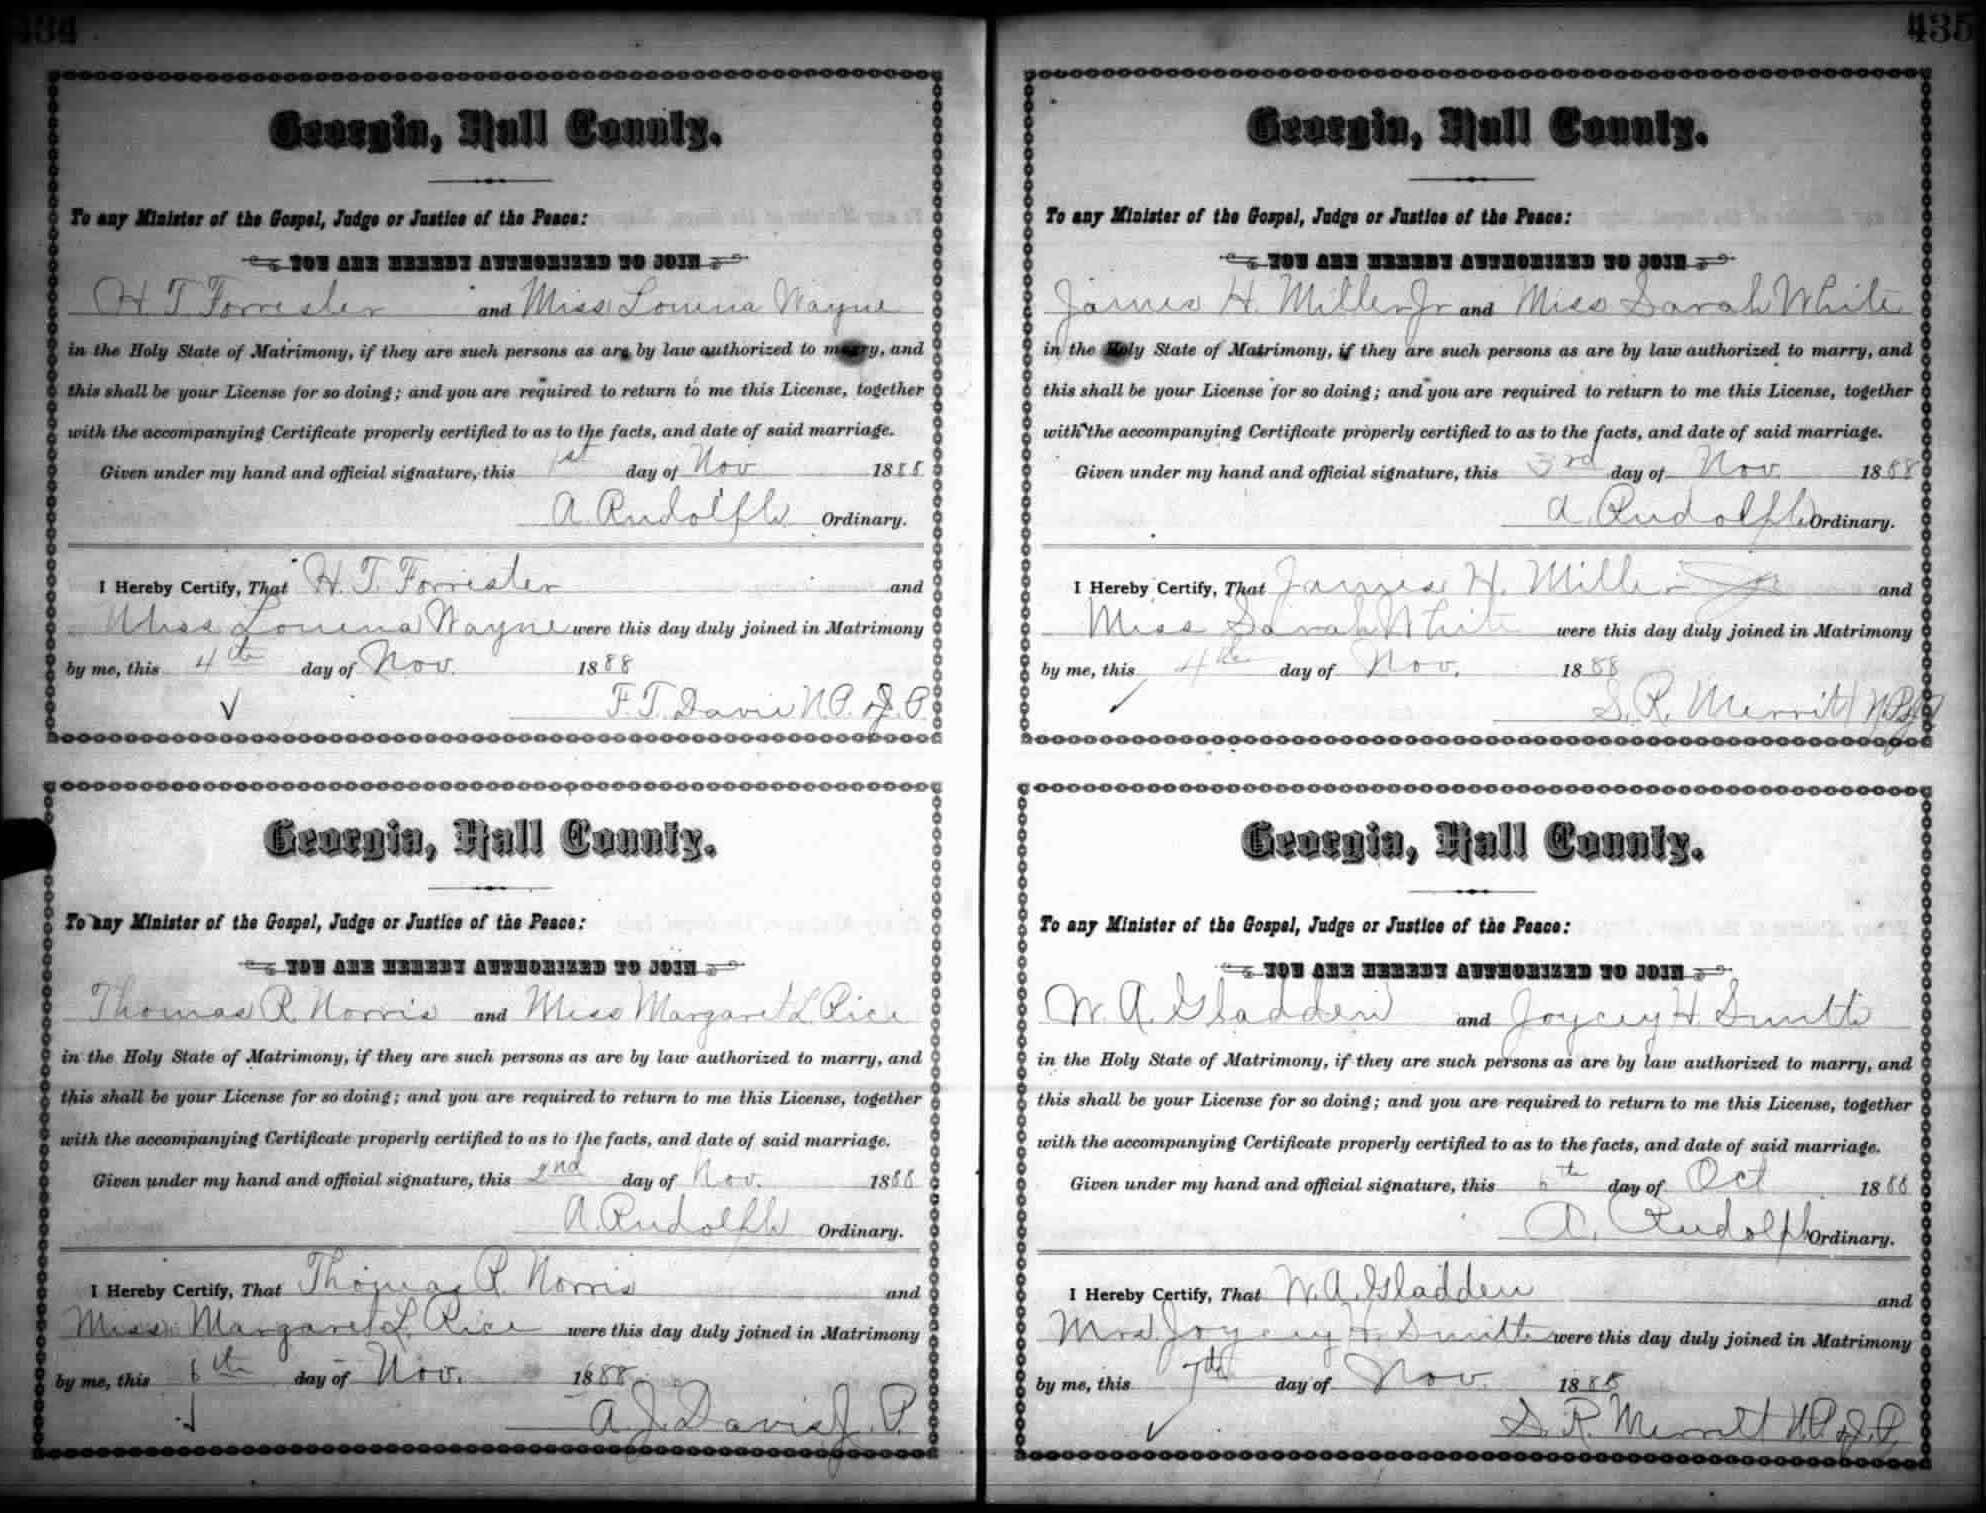 434
Georgia, Hall County.
To any Minister of the Gospel, Judge or Justice of the Peace:
YOU ARE HEREBY AUTHORIZED TO JOIN
H. T. Forrester and Miss Louena Wayne
in the Holy State of Matrimony, if they are such persons as are by law authorized to marry, and
this shall be your License for so doing; and you are required to return to me this License, together
with the accompanying Certificate properly certified to as to the facts, and date of said marriage.
Given under my hand and official signature, this 1st day of Nov 1888
A. Rudolph Ordinary.
I Hereby Certify, That H. T. Forrester and
Miss Louena Wayne were this day duly joined in Matrimony
by me, this 4th day of Nov. 1888
F. T. Davis N.P. & J.P.
Georgia, Hall County.
To any Minister of the Gospel, Judge or Justice of the Peace:
YOU ARE HEREBY AUTHORIZED TO JOIN
Thomas R. Norris and Miss Margaret L. Rice
in the Holy State of Matrimony, if they are such persons as are by law authorized to marry, and
this shall be your License for so doing; and you are required to return to me this License, together
with the accompanying Certificate properly certified to as to the facts, and date of said marriage.
Given under my hand and official signature, this 2nd day of Nov. 1888
A. Rudolph Ordinary.
I Hereby Certify, That Thomas R. Norris and
Miss Margaret L. Rice were this day duly joined in Matrimony
by me, this 6th day of Nov. 1888
A. J. Davis J. P.
435
Georgia, Hall County.
To any Minister of the Gospel, Judge or Justice of the Peace:
YOU ARE HEREBY AUTHORIZED TO JOIN
James H. Miller Jr and Miss Sarah White
in the Holy State of Matrimony, if they are such persons as are by law authorized to marry, and
this shall be your License for so doing; and you are required to return to me this License, together
with the accompanying Certificate properly certified to as to the facts, and date of said marriage.
Given under my hand and official signature, this 3rd day of Nov. 1888
A. Rudolph Ordinary.
I Hereby Certify, That James H. Miller Jr and
Miss Sarah White were this day duly joined in Matrimony
by me, this 4th day of Nov. 1888
S. R. Merritt N.P. & J.P.
Georgia, Hall County.
To any Minister of the Gospel, Judge or Justice of the Peace:
YOU ARE HEREBY AUTHORIZED TO JOIN
W. A. Gladden and Joycey H. Smith
in the Holy State of Matrimony, if they are such persons as are by law authorized to marry, and
this shall be your License for so doing; and you are required to return to me this License, together
with the accompanying Certificate properly certified to as to the facts, and date of said marriage.
Given under my hand and official signature, this 6th day of Oct 1888
A. Rudolph Ordinary.
I Hereby Certify, That W. A. Gladden and
Mrs Joycey H. Smith were this day duly joined in Matrimony
by me, this 7th day of Nov. 1888
S. R. Merritt N.P. & J.P.